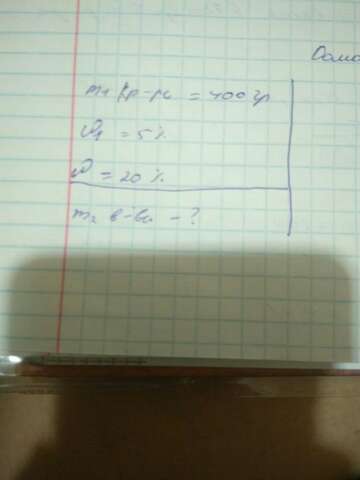 Само
m₁ р-ра = 400 гр
ω₁ = 5 %
ω = 20 %
m₂ в-ва - ?